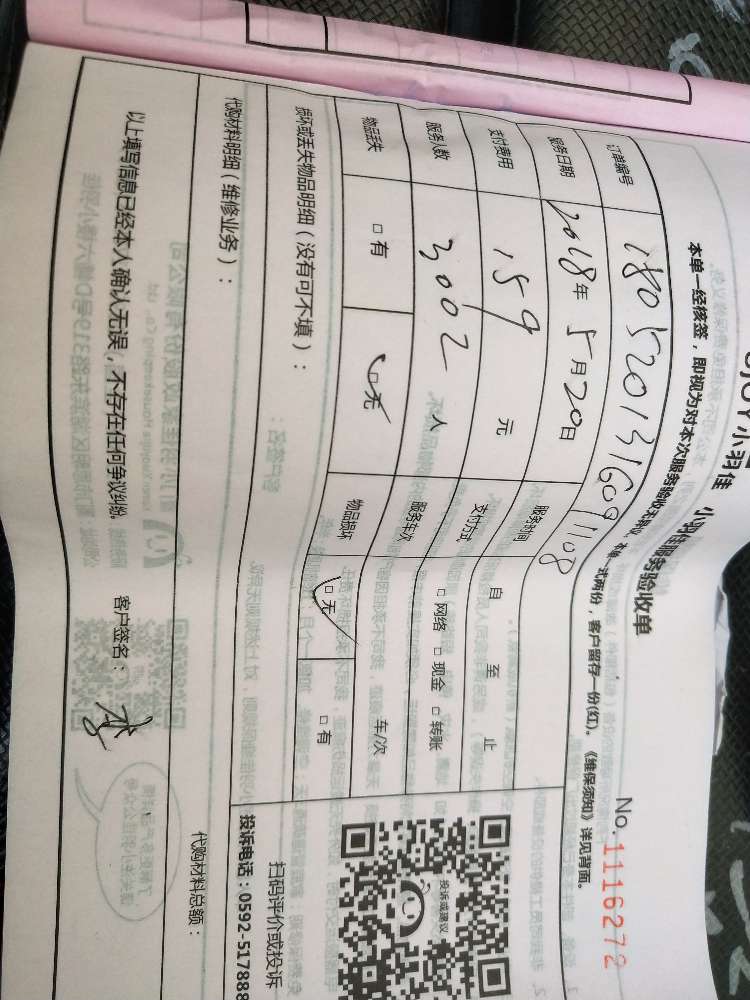 小羽佳 小羽佳服务验收单
No.1116272
本单一经核签，即视为对本次服务验收无异议。本单一式两份，客户留存一份(红)。《维保须知》详见背面。
订单编号 1805201316091108
服务日期 2018年 5月20日 服务时间 自 至 止
支付费用 159 元 支付方式 □网络 □现金 □转账
服务人数 3002 人 服务车次 车/次
物品丢失 □有 □无 物品损坏 □无 □有
损坏或丢失物品明细（没有可不填）：
代购材料明细（维修业务）：
代购材料总额：
以上填写信息已经本人确认无误，不存在任何争议纠纷。 客户签名：
投诉或建议
扫码评价或投诉
投诉电话：0592-517888